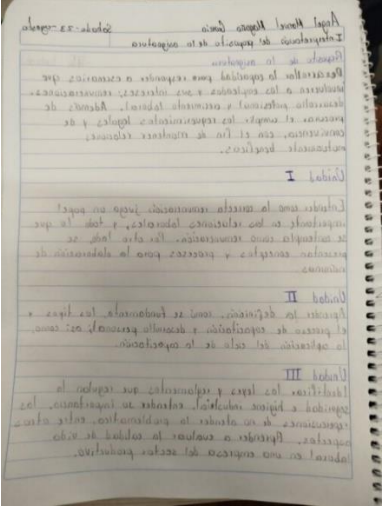 Angel Garcia Sabado-23-agosto
Interpretación del proposito de la asignatura
Proposito de la asignatura
Desarrollar la capacidad para responder a escenarios que
involucren a los empleados y sus intereses, remuneraciones,
desarrollo y crecimiento laboral. Además de
promover el cumplir los requerimientos legales y de
convivencia, con el fin de mantener relaciones
mutuamente beneficas.
Unidad I
Entender como la correcta remuneración juega un papel
importante en las relaciones laborales, y todo lo que
se contempla como remuneración. Por otro lado, se
presentan conceptos y procesos para la elaboración de
nóminas
Unidad II
Aprender la definición, como se fundamenta, los tipos y
el proceso de capacitación y desarrollo personal; asi como
la aplicación del ciclo de la capacitación
Unidad III
Identificar las leyes y reglamentos que regulan la
seguridad e higiene industrial, entender su importancia, las
repercusiones de no atender la problematica, entre otros
aspectos. Aprender a evaluar la calidad de vida
laboral en una empresa del sector productivo.